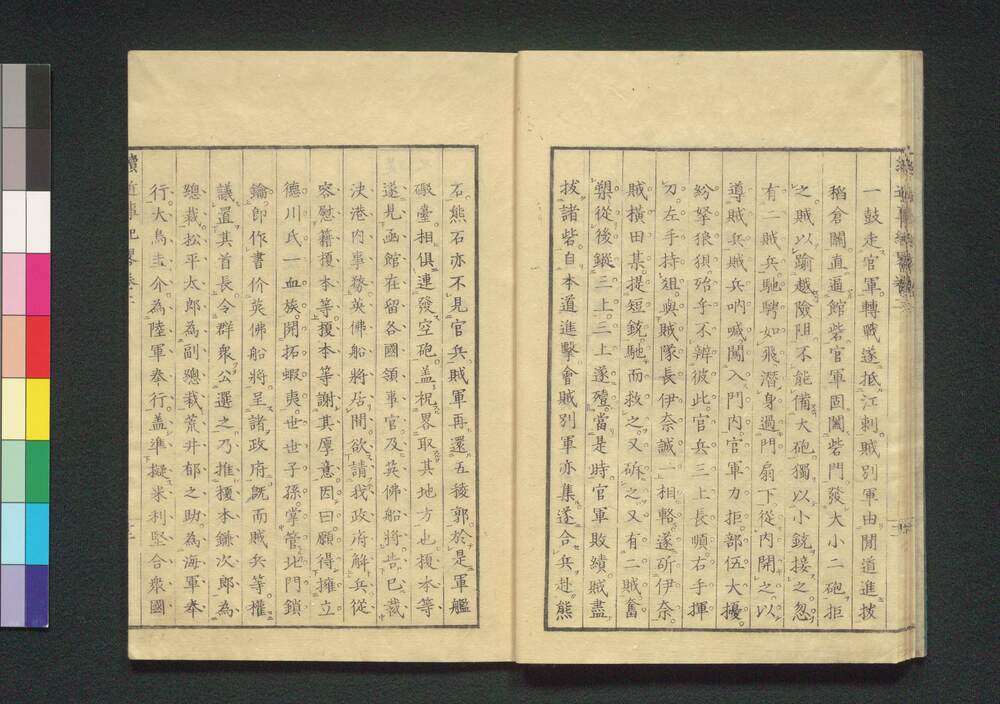 一鼓走官軍轉戰遂抵江刺賊別軍由間道進拔
稻倉關直逼館砦官軍固闔砦門發大小二砲拒
之賊以踰越險阻不能備大砲獨以小銃接之忽
有二賊兵馳騁如飛潛身過門扇下從內開之以
導賊兵賊兵吶喊闖入門內官軍力拒部伍大擾
紛拏狼狽殆乎不辨彼此官兵三上長順右手揮
刀左手持俎與賊隊長伊奈誠一相輅遂斫伊奈
賊橫田某提短銃馳而救之又斫之又有二賊奮
槊從後鏦三上三上遂殪當是時官軍敗績賊盡
拔諸砦自本道進擊會賊別軍亦集遂合兵赴熊
石熊石亦不見官兵賊軍再還五稜郭於是軍艦
礮臺相俱連發空砲蓋祝畧取其地方也榎本等
遂見函館在留各國領事官及英佛船將告已裁
決港內事務英佛船將居間欲請我政府解兵從
容慰藉榎本等榎本等謝其厚意因曰願得擁立
德川氏一血族開拓蝦夷世世子孫掌管北門鎖
鑰即作書价英佛船將呈諸政府既而賊兵等權
議置其首長令群衆公選之乃推榎本鎌次郎為
總裁松平太郎為副總裁荒井郁之助為海軍奉
行大鳥圭介為陸軍奉行蓋準擬米利堅合衆國